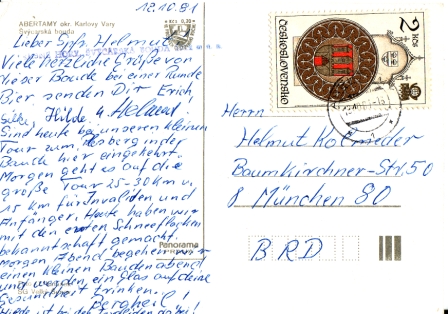 12.10.81
ABERTAMY okr. Karlovy Vary
Švýcarská bouda
Lieber Helmut
Viele herzliche Grüße von
dieser Baude bei einer Runde
Bier senden Dir Erich
Hilde u. Helmut!
Sind heute bei unseren kleinen
Tour zum hier
Bauch hier eingekehrt.
Morgen geht es auf die
große Tour 25-30 km u.
15 km für Invaliden und
Anfänger. Heute haben wir
mit den ersten Schneeflocken
bekanntschaft gemacht.
Morgen Abend begehen wir
einen kleinen Baudenabend
und werden ein Glas auf deine
Gesundheit trinken.
Bergheil!
Panorama
Československo
2 Kčs
Herrn
Helmut Kolmeder
Baumkirchner-Str. 50
8 München 80
BRD